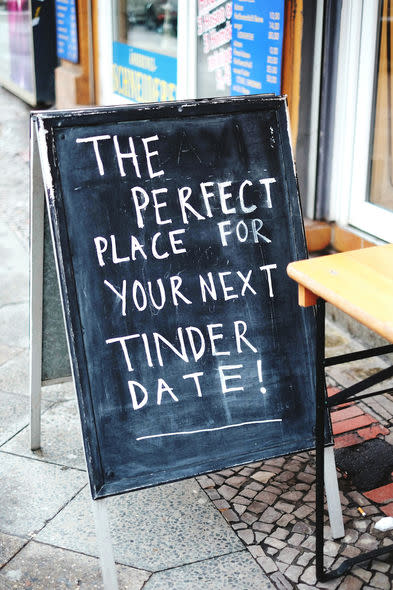 THE
PERFECT
PLACE FOR
YOUR NEXT
TINDER
DATE!
SCHNEIDEREI